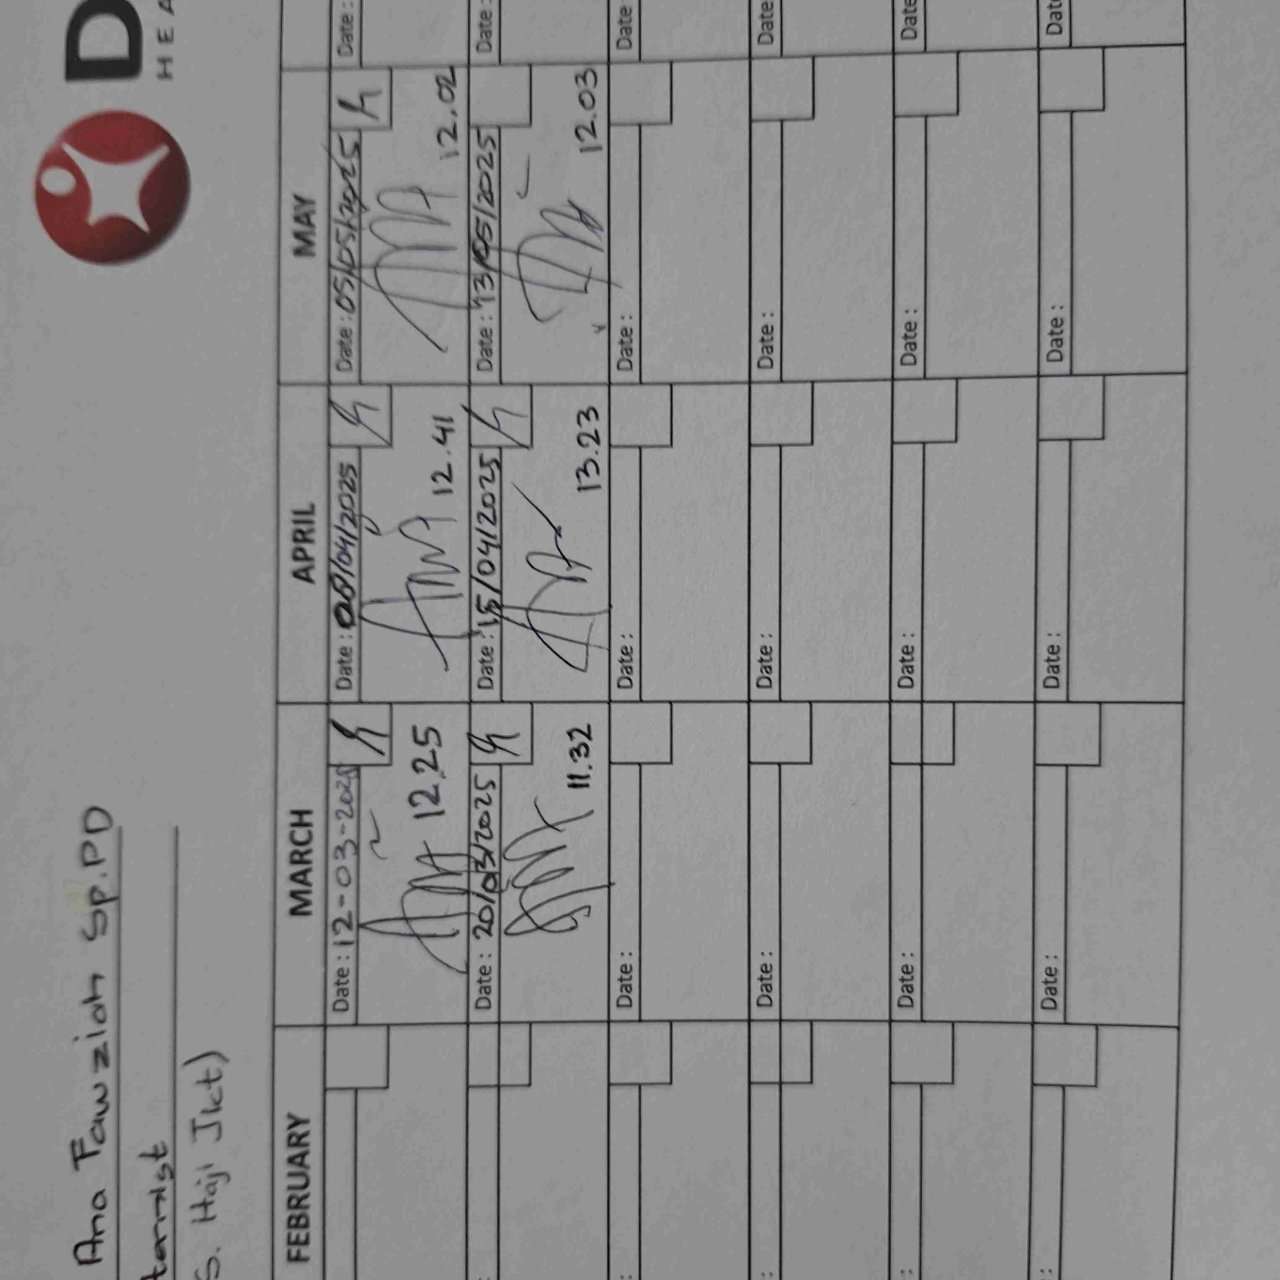 D
HEA
Ana Fawziah Sp.PD
S. Haji Jkt)
FEBRUARY MARCH APRIL MAY
Date : 12-03-2025 Date : 08/04/2025 Date : 05/05/2025 Date :
12.25 12.41 12.02
Date : 20/03/2025 Date : 15/04/2025 Date : 13/05/2025 Date :
11.32 13.23 12.03
: Date : Date : Date : Date
: Date : Date : Date : Date
: Date : Date : Date : Date
: Date : Date : Date : Date